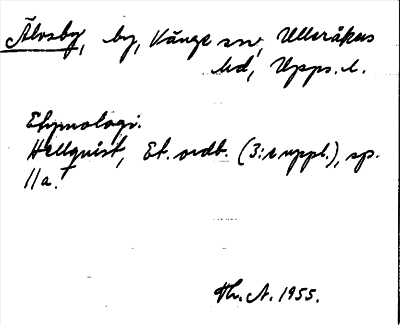 Älvsby, by, Vänge sn, Ulleråkers
hd, Upps. l.
Etymologi.
Hellquist, Et. ordb. (3:e uppl.), sp.
11a.
Th. A. 1955.